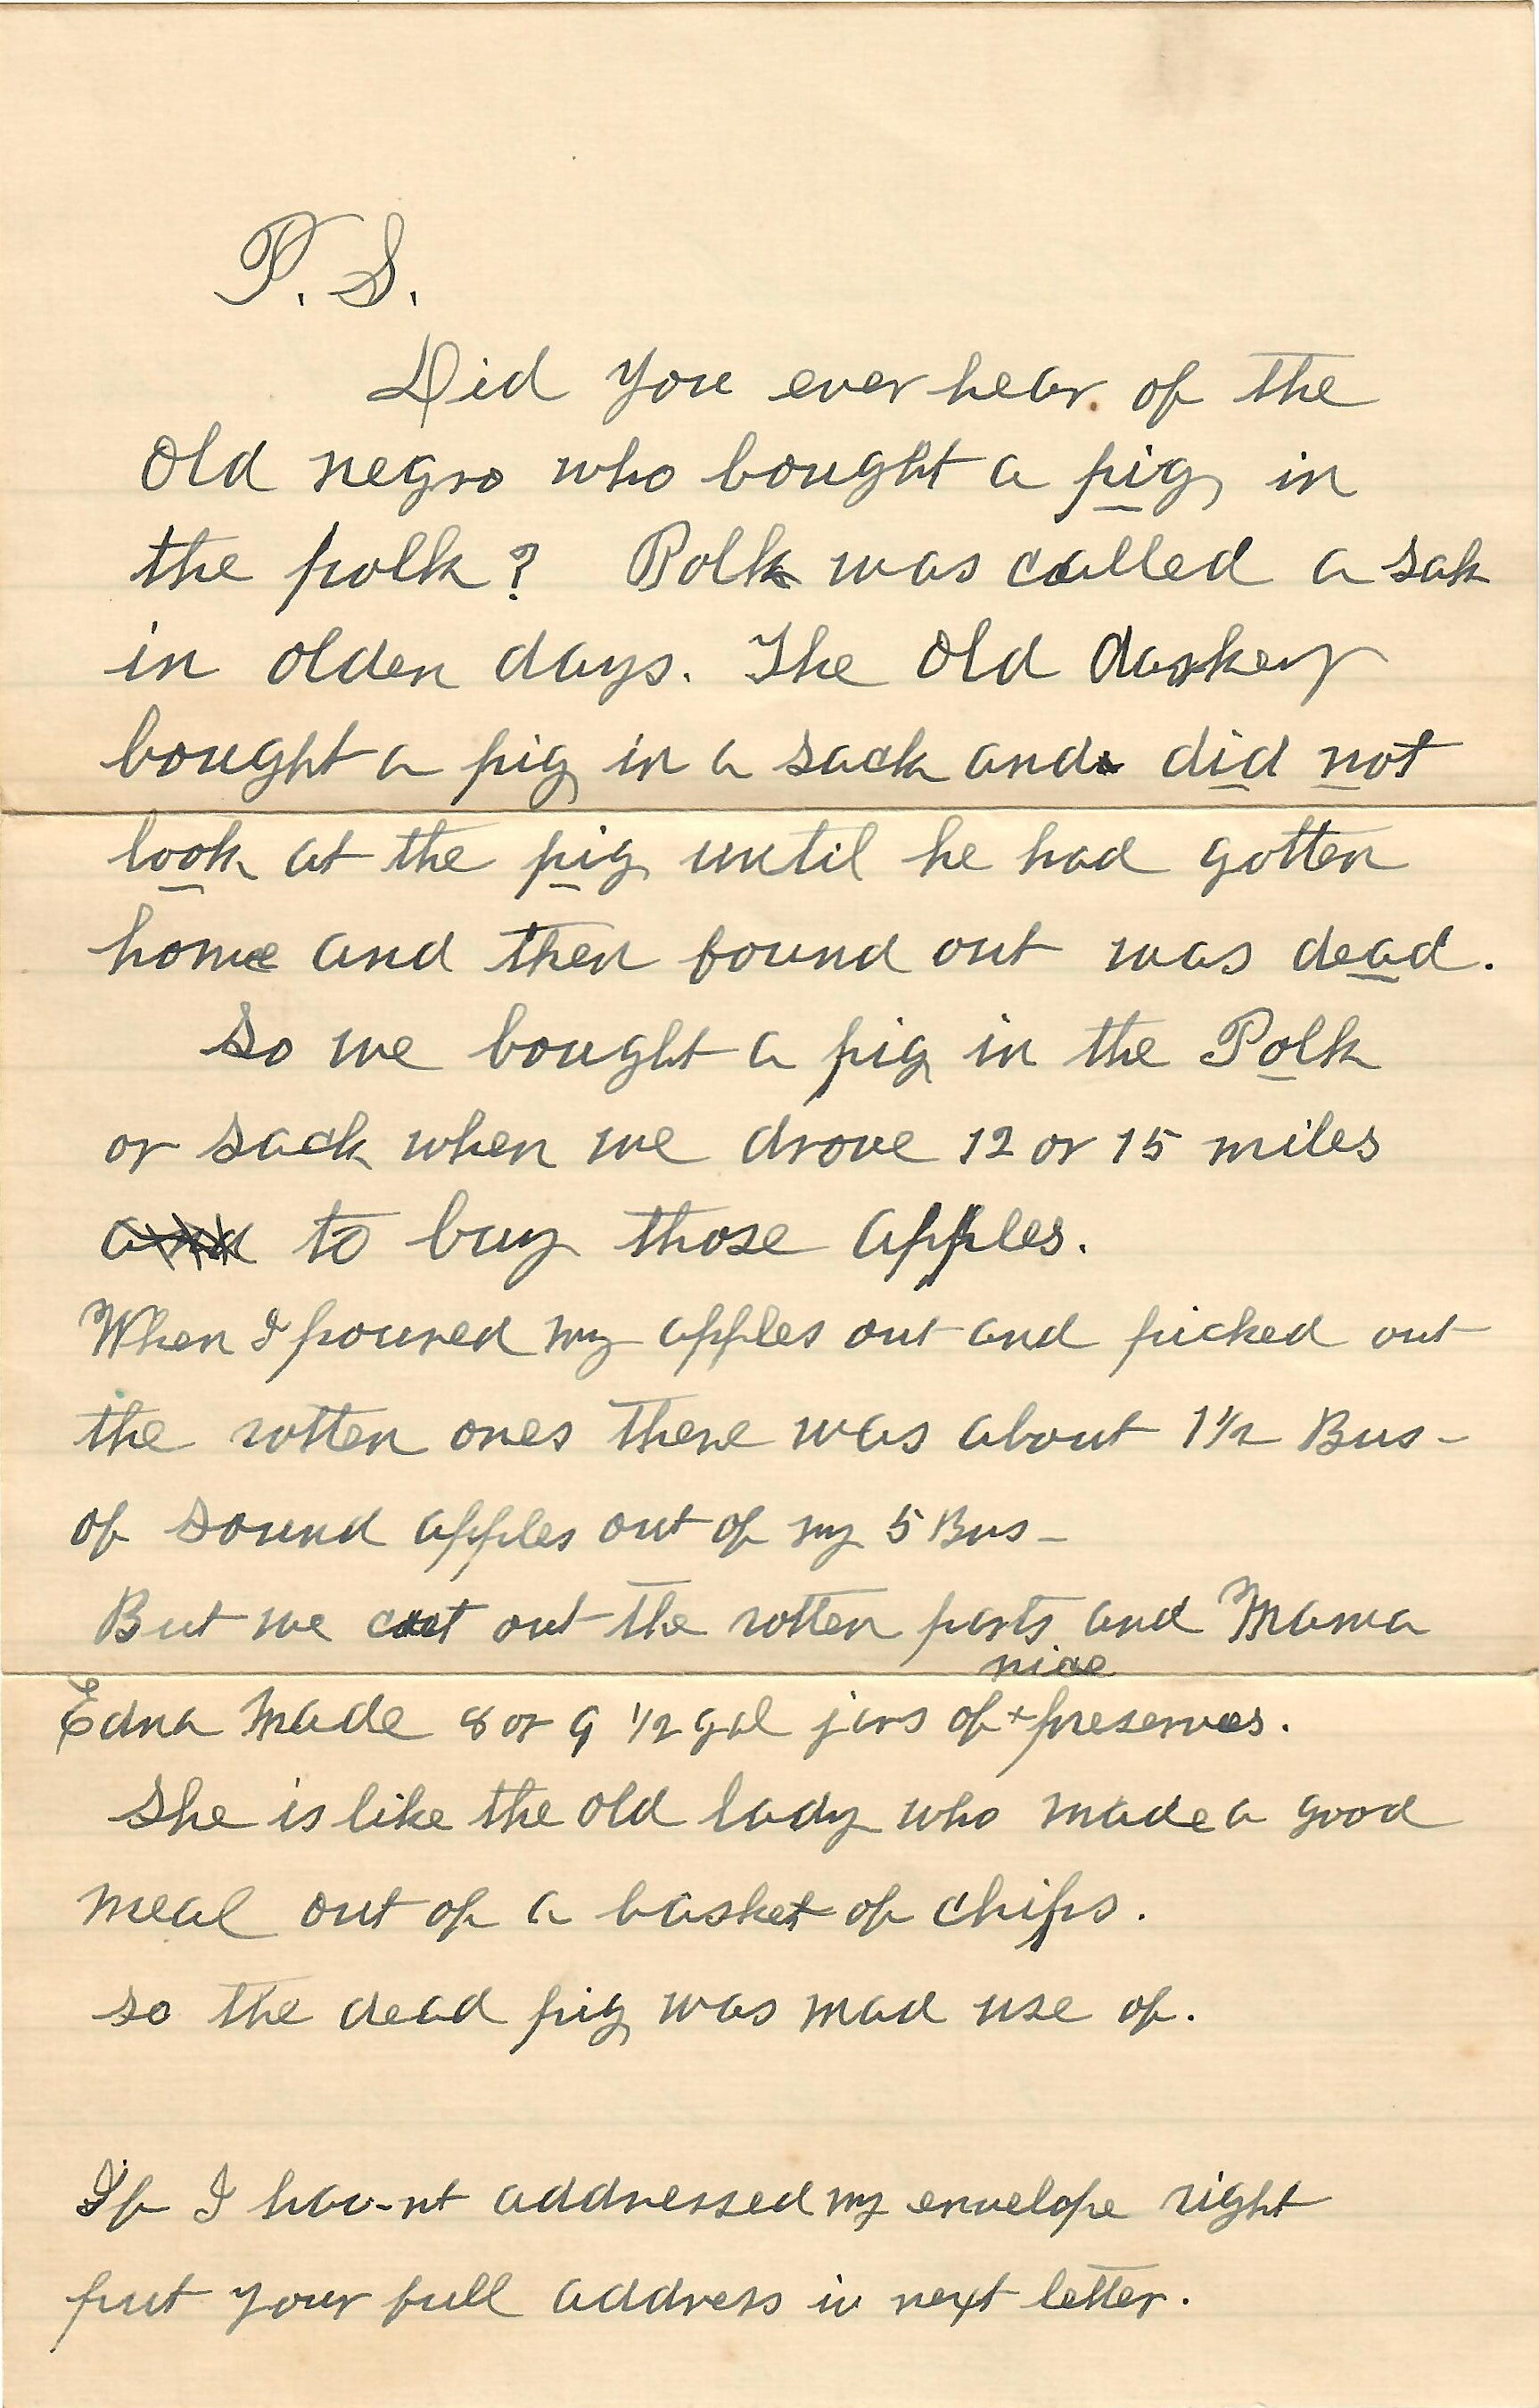 P. S.
Did you ever hear of the
old negro who bought a pig in
the polk? Polk was called a sak
in olden days. The old darkey
bought a pig in a sack and did not
look at the pig until he had gotten
home and then found out was dead.
So we bought a pig in the Polk
or sack when we drove 12 or 15 miles
and to buy those apples.
When I poured my apples out and picked out
the rotten ones there was about 1½ Bus-
of sound apples out of my 5 Bus-
But we cut out the rotten parts and Mama
nice
Edna made 8 or 9 ½ gal jars of x preserves.
She is like the old lady who made a good
meal out of a basket of chips.
so the dead pig was mad use of.
If I hav-nt addressed my envelope right
put your full address in next letter.